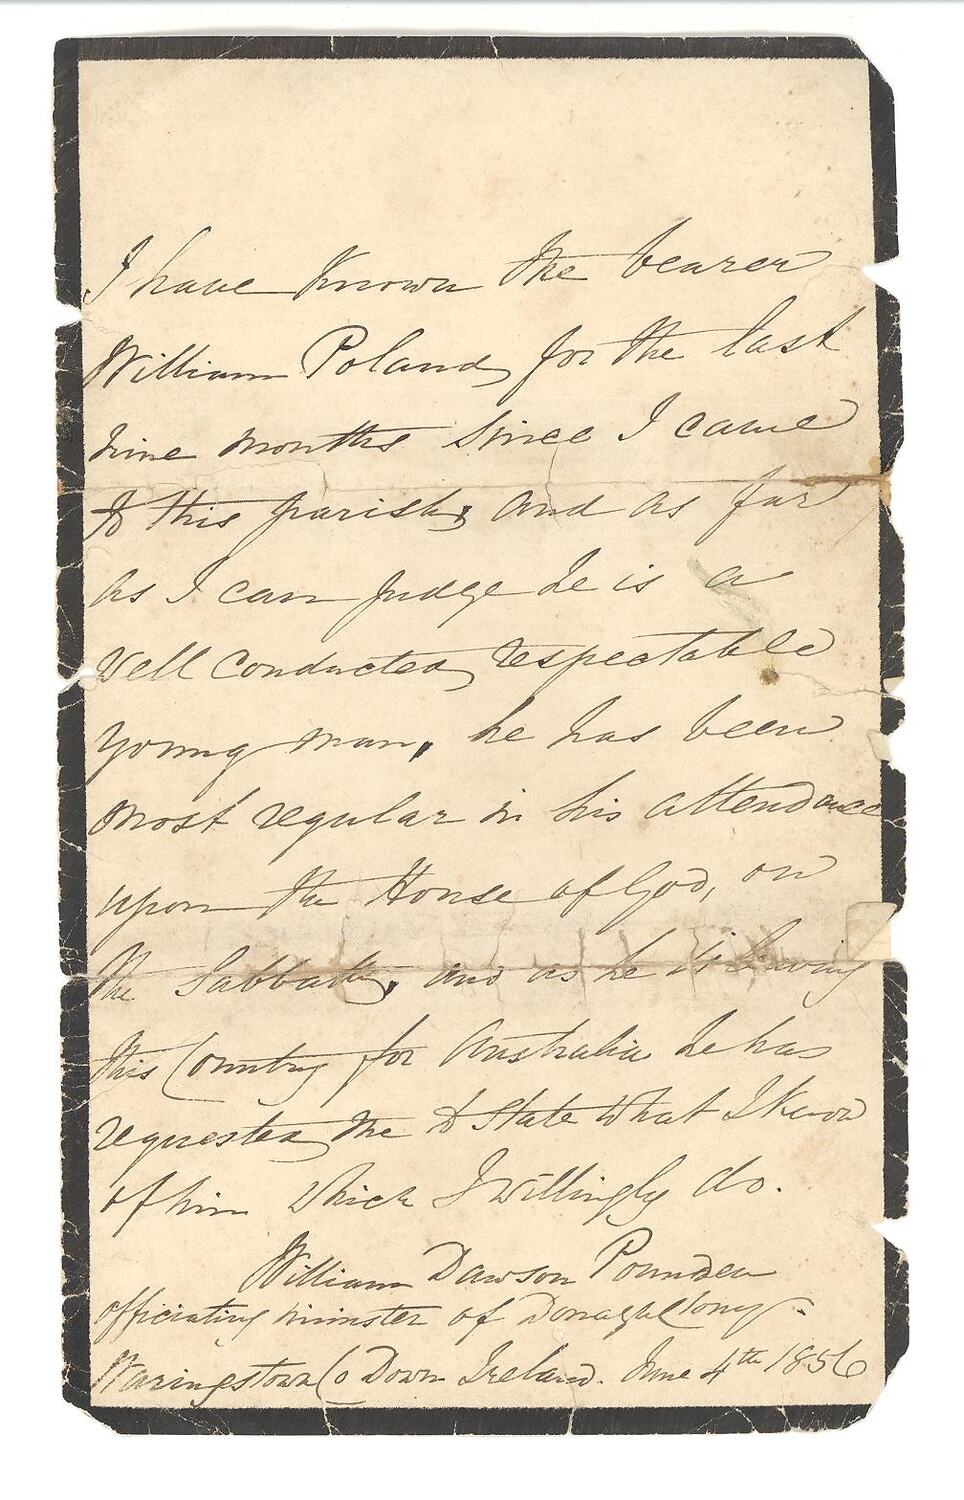 I have Known the bearer
William Poland for the last
nine months since I came
to this parish, and as far
as I can judge he is a
well conducted, respectable
young man, he has been
most regular in his attendance
upon the House of God, on
the Sabbath, and as he is leaving
this Country for Australia he has
requested me to State what I know
of him which I willingly do.
William Dawson Pounden
officiating minister of Donaghcloney.
Waringstown Co Down Ireland. June 4th 1856